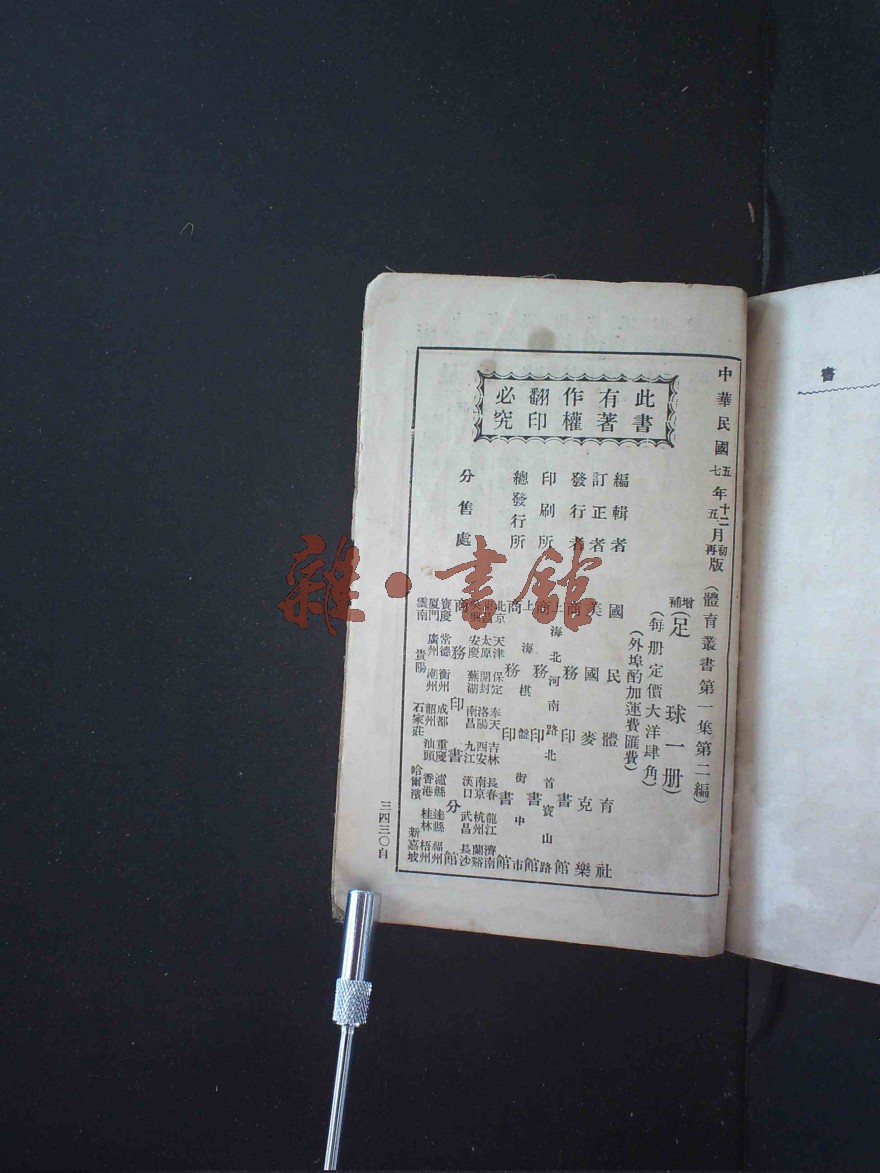 書
中華民國五年十二月初版
七年五月再版
(體育叢書第一集第二編)
增補(足球一册)
(每册定價大洋肆角)
(外埠酌加運費匯費)
此書有著作權翻印必究
編輯者 國民體育社
訂正者 美國麥克樂
發行者 商務印書館
印刷所 上海北河南路北首寶山路
商務印書館
總發行所 上海棋盤街中市
商務印書館
分售處 商務印書分館
北京 天津 保定 奉天 吉林 長春 龍江 濟南
太原 開封 洛陽 西安 南京 杭州 蘭谿
安慶 蕪湖 南昌 九江 漢口 武昌 長沙
寶慶 常德 衡州 成都 重慶 瀘縣 達縣 福州
厦門 廣州 潮州 韶州 汕頭 香港 桂林 梧州
雲南 貴陽 石家莊 哈爾濱 新嘉坡
三四三〇自
雜·書館